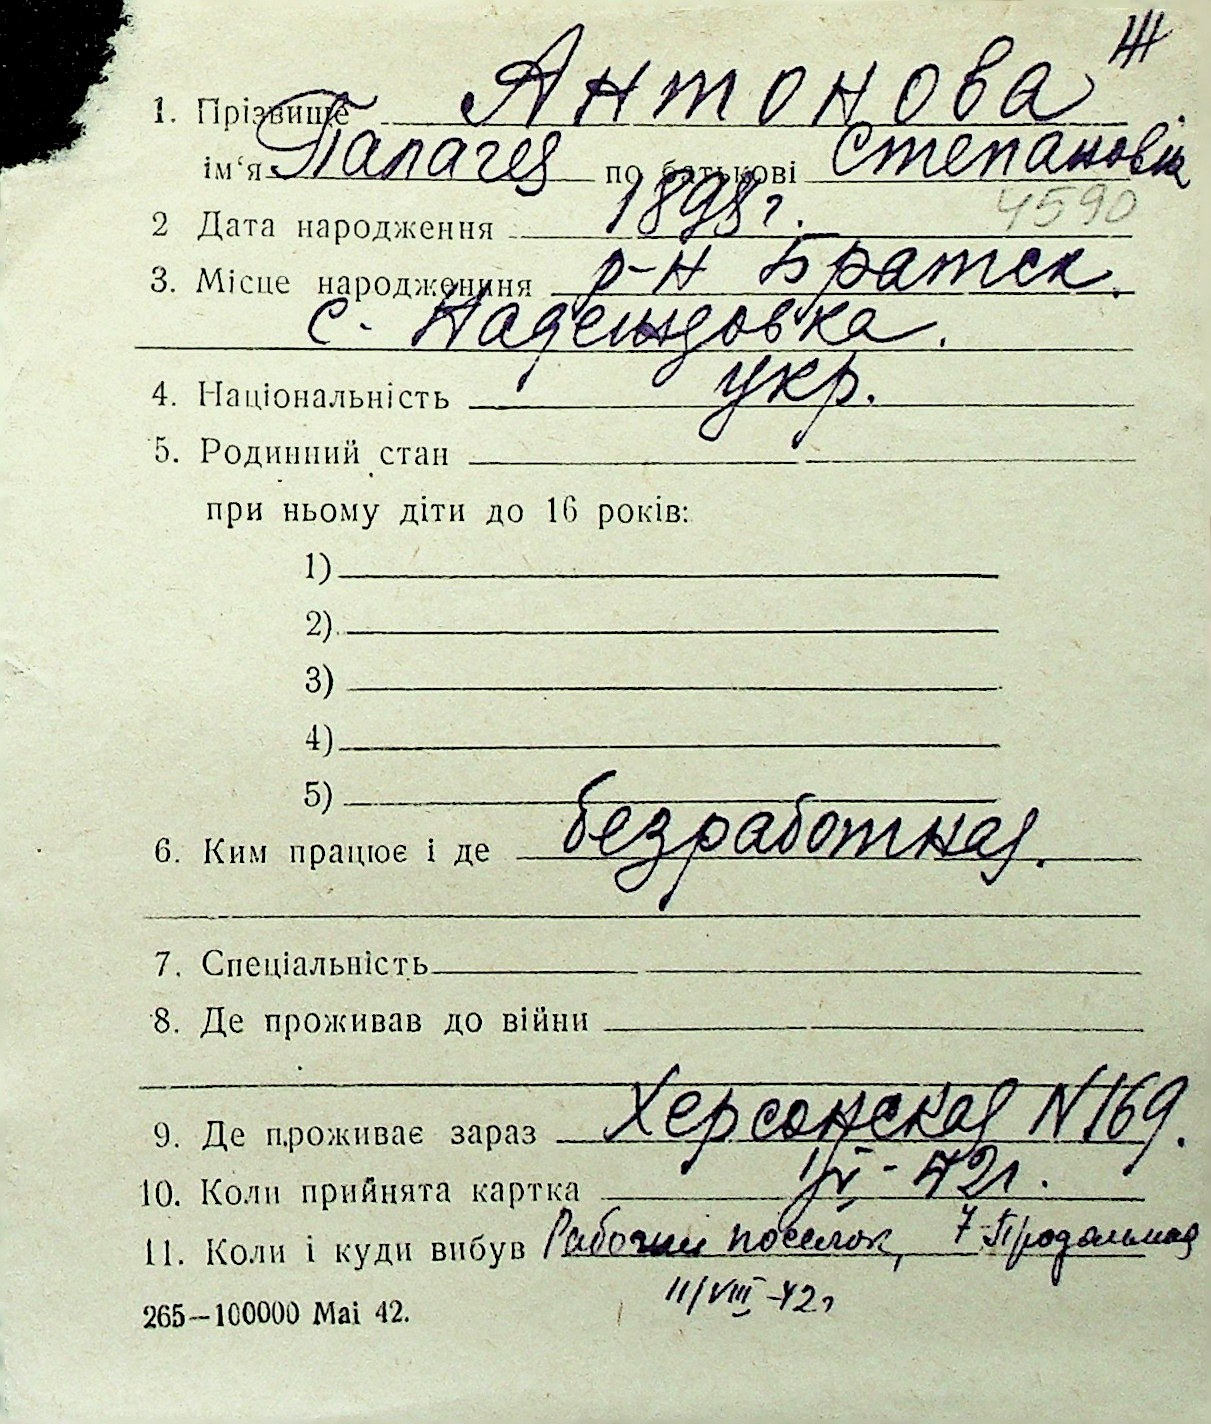 Ж
1. Прізвище Антонова
ім'я Палагея по батькові Степановна
4590
2 Дата народження 1898 г.
3. Місце народження р-н Братск.
с. Надеждовка.
4. Національність укр.
5. Родинний стан
при ньому діти до 16 років:
1)
2)
3)
4)
5)
6. Ким працює і де безработная.
7. Спеціальність
8. Де проживав до війни
9. Де проживає зараз Херсонская N 169.
10. Коли прийнята картка - 42г.
11. Коли і куди вибув Рабочий поселок, 7 Продольная
11/VIII-42г
265—100000 Mai 42.